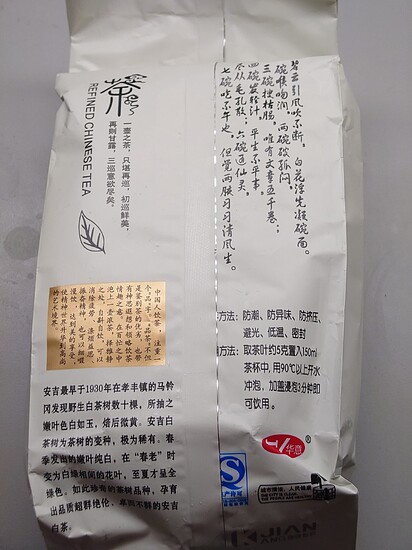 碧云引风吹不断，白花浮光凝碗面。
碗喉吻润，两碗破孤闷。
三碗搜枯肠，唯有文章五千卷；
四碗发轻汗，平生不平事，
尽从毛孔散；六碗通仙灵。
七碗吃不 但觉两腋习习清风生。
茶
REFINED CHINESE TEA
一壶之茶，只堪再巡，初巡鲜美，
再则甘露，三巡意欲尽矣。
中国人饮茶 注重
个“品”字。“品茶”不但
是鉴别茶的优劣，也带
有神思遐想和领略饮茶
情趣之意。在百忙之中
泡上一壶浓茶，择雅静
之处，自斟自饮，可以
消除疲劳、涤烦益思、
振奋精神，也可以细啜
慢饮，达到美的享受，
使精神世界升华到高尚
的艺术境界。
方法：防潮、防异味、防挤压、
避光、低温、密封
方法：取茶叶约5克置入150ml
茶杯中，用90℃以上开水
冲泡，加盖浸泡3分钟即
可饮用。
安吉最早于1930年在孝丰镇的马铃
冈发现野生白茶树数十棵，所抽之
嫩叶色白如玉，焙后微黄。安吉白
茶树为茶树的变种，极为稀有。春
季发出的嫩叶纯白，在“春老”时
变为白绿相间的花叶，至夏才呈全
绿色。如此珍奇的茶树品种，孕育
出品质超群绝伦、卓而不群的安吉
白茶。
华意
JIAN